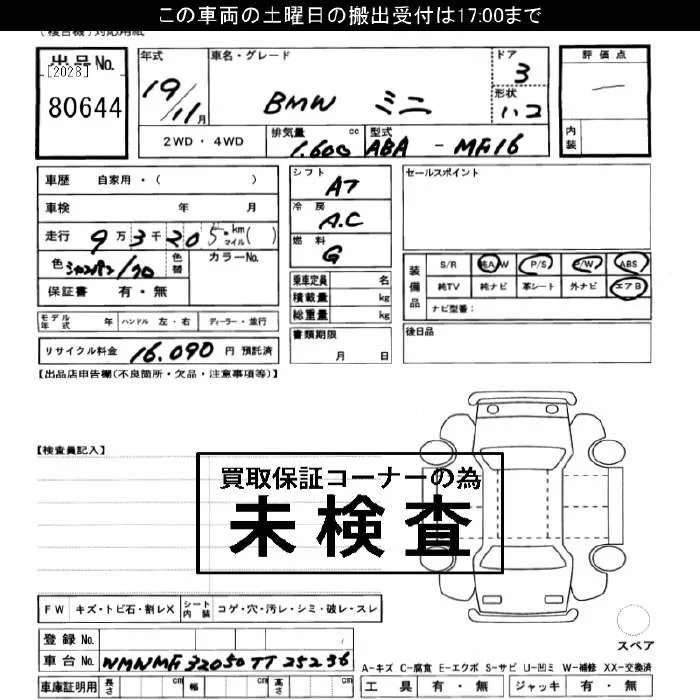 この車両の土曜日の搬出受付は17:00まで
(複合機)対応用紙
出品No.
[2028]
80644
年式
19/11月
車名・グレード
BMW ミニ
ドア
3
形状
ハコ
2WD・4WD
排気量 cc
1.600
型式
ABA - MF16
評価点
内装
車歴 自家用・( )
車検 年 月
走行 9万3千205 km マイル( )
色
色替
カラーNo.
保証書 有・無
シフト
AT
冷房
A.C
燃料
G
乗車定員 名
積載量 kg
総重量 kg
セールスポイント
装備品
S/R
純A/W
P/S
P/W
ABS
純TV
純ナビ
革シート
外ナビ
エアB
ナビ型番:
モデル年式 年
ハンドル 左・右
ディーラー・並行
書類期限
月 日
後日品
リサイクル料金 16.090 円 預託済
【出品店申告欄(不良箇所・欠品・注意事項等)】
【検査員記入】
買取保証コーナーの為
未検査
FW キズ・トビ石・割レX
シート内装 コゲ・穴・汚レ・シミ・破レ・スレ
登録No.
車台No. WMWMF32050TT25236
スペア
A-キズ C-腐食 E-エクボ S-サビ U-凹ミ W-補修 XX-交換済
車庫証明用 長さ cm 幅 cm 高さ cm
工具 有・無
ジャッキ 有・無